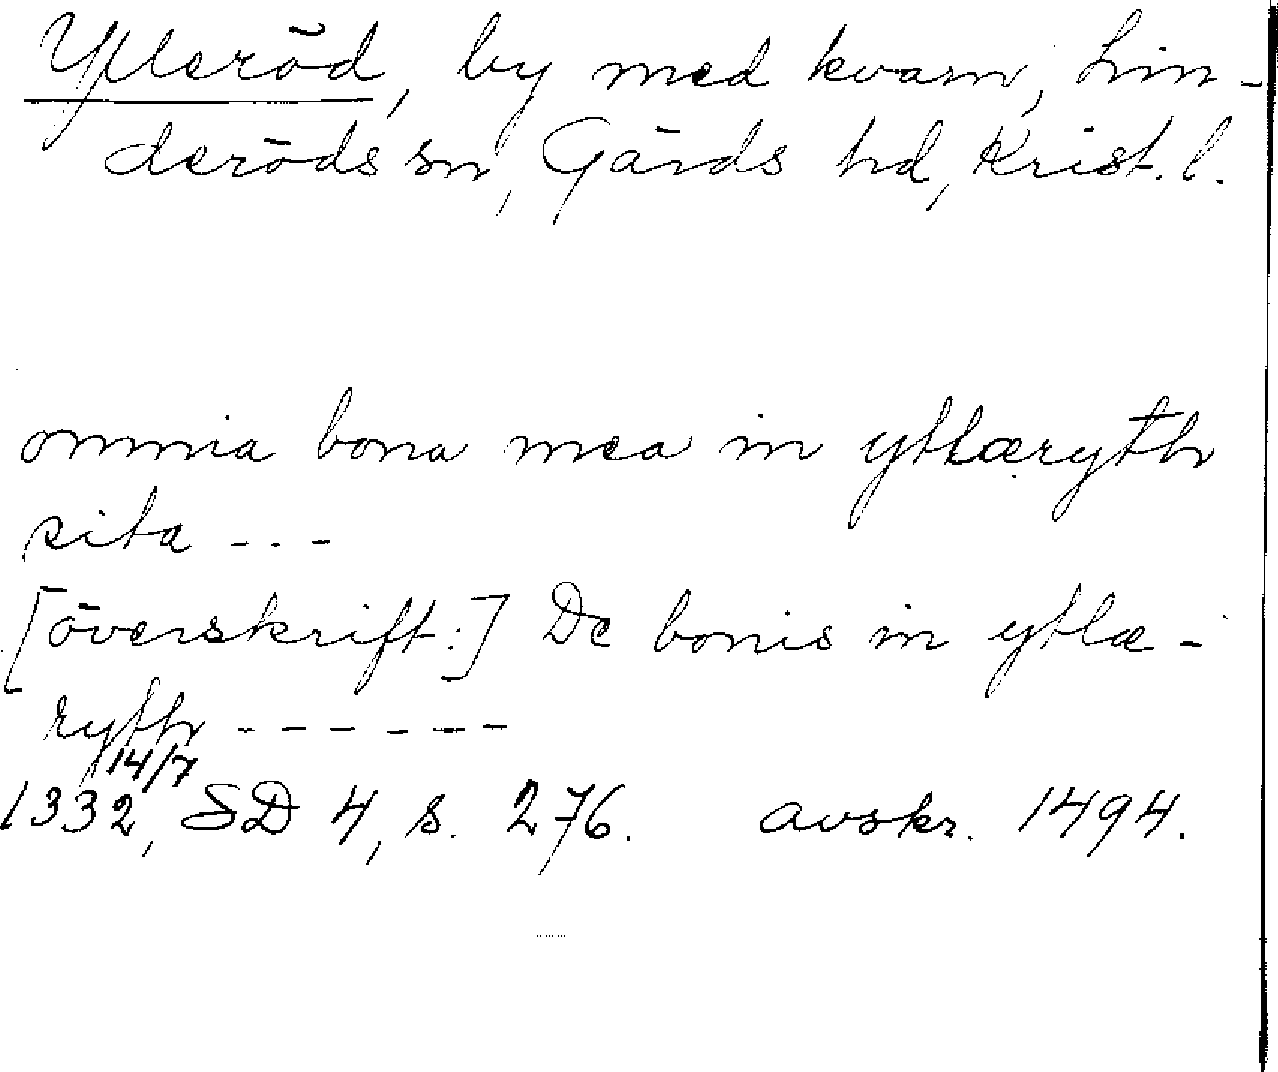 Ytleröd, by med kvarn, Lin-
deröds sn, Gärds hd, Krist. l.
omnia bona mea in ytlæryth
sita ---
[överskrift:] De bonis in ytlæ-
ryth ------
14/7
1332, SD 4, s. 276. avskr. 1494.